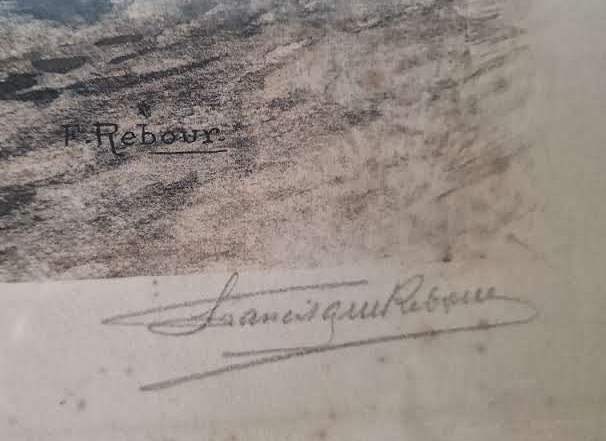 F. Rebour.
Francisque Rebour